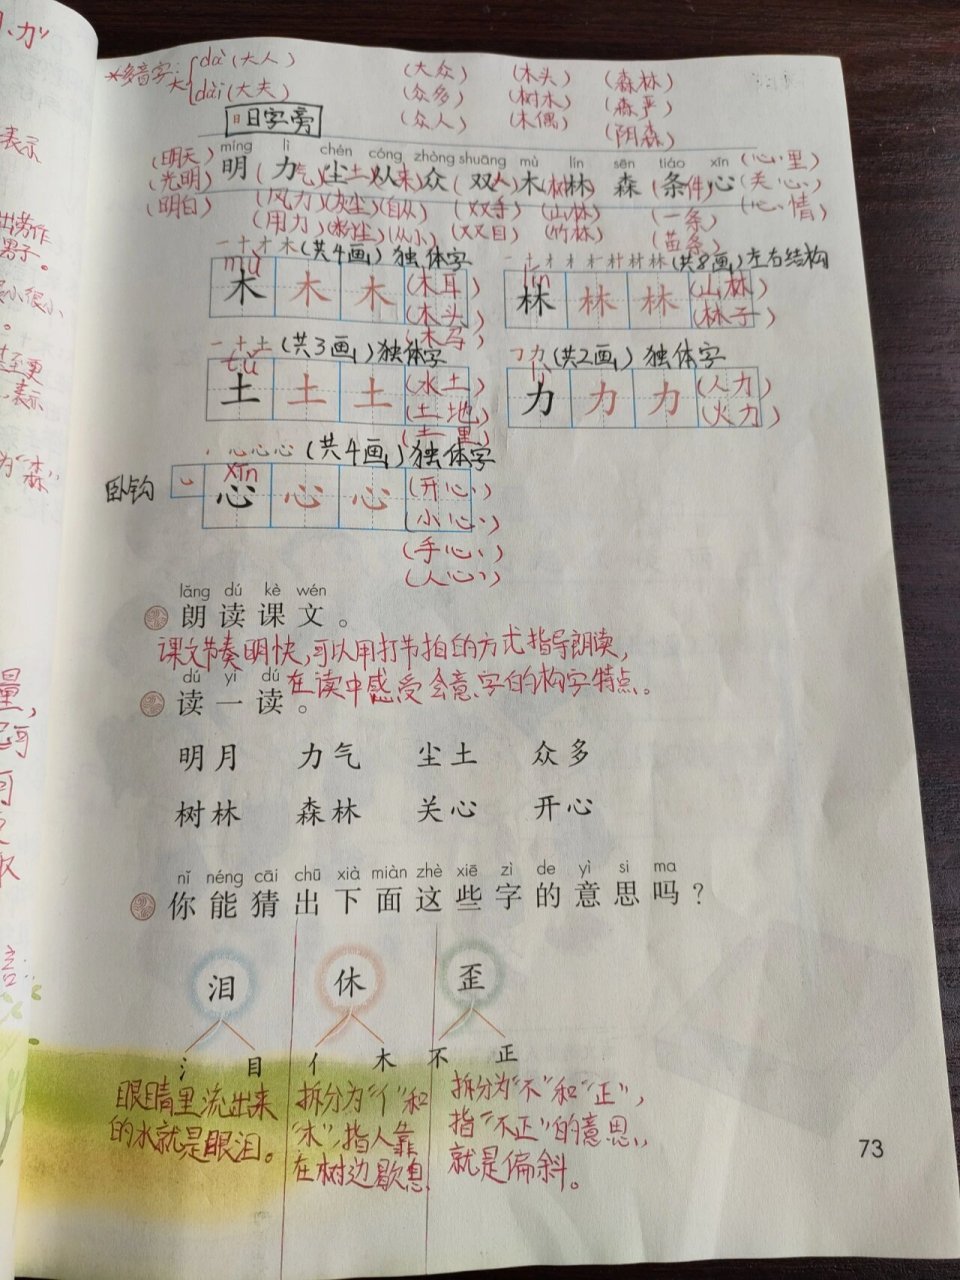 *多音字:大{dà(大人) (大众) (木头) (森林)
dài(大夫) (众多) (树木) (森严)
(众人) (木偶) (阴森)
日 日字旁
míng lì chén cóng zhòng shuāng mù lín sēn tiáo xīn
(明天) (心里)
明 力(气) 尘(土) 从(来) 众 双(人) 木 (树)林 森 条(件) 心
(光明) (关心)
(明白) (风力) (灰尘) (自从) (双手) (山林) (一条) (心情)
(用力) (粉尘) (从小) (双目) (竹林) (苗条)
一十才木(共4画) 独体字
一十才木木村材林(共8画)左右结构
mù
木 木 木 (木耳)
(木头)
(木马)
lín
林 林 林 (山林)
(林子)
一十土(共3画)独体字
フ力(共2画)独体字
tǔ
土 土 土 (水土)
(土地)
lì
力 力 力 (人力)
(火力)
心心心(共4画)独体字
卧钩
xīn
心 心 心 (开心)
(小心)
(手心)
(人心)
lǎng dú kè wén
朗读课文。
课文节奏明快,可以用打节拍的方式指导朗读,
在读中感受会意字的构字特点。
dú yi dú
读一读。
明月 力气 尘土 众多
树林 森林 关心 开心
nǐ néng cāi chū xià miàn zhè xiē zì de yì si ma
你能猜出下面这些字的意思吗?
泪 休 歪
氵 目 亻 木 不 正
眼睛里流出来
的水就是眼泪。
拆分为"亻"和
"木",指人靠
在树边歇息
拆分为"不"和"正",
指"不正"的意思,
就是偏斜。
73